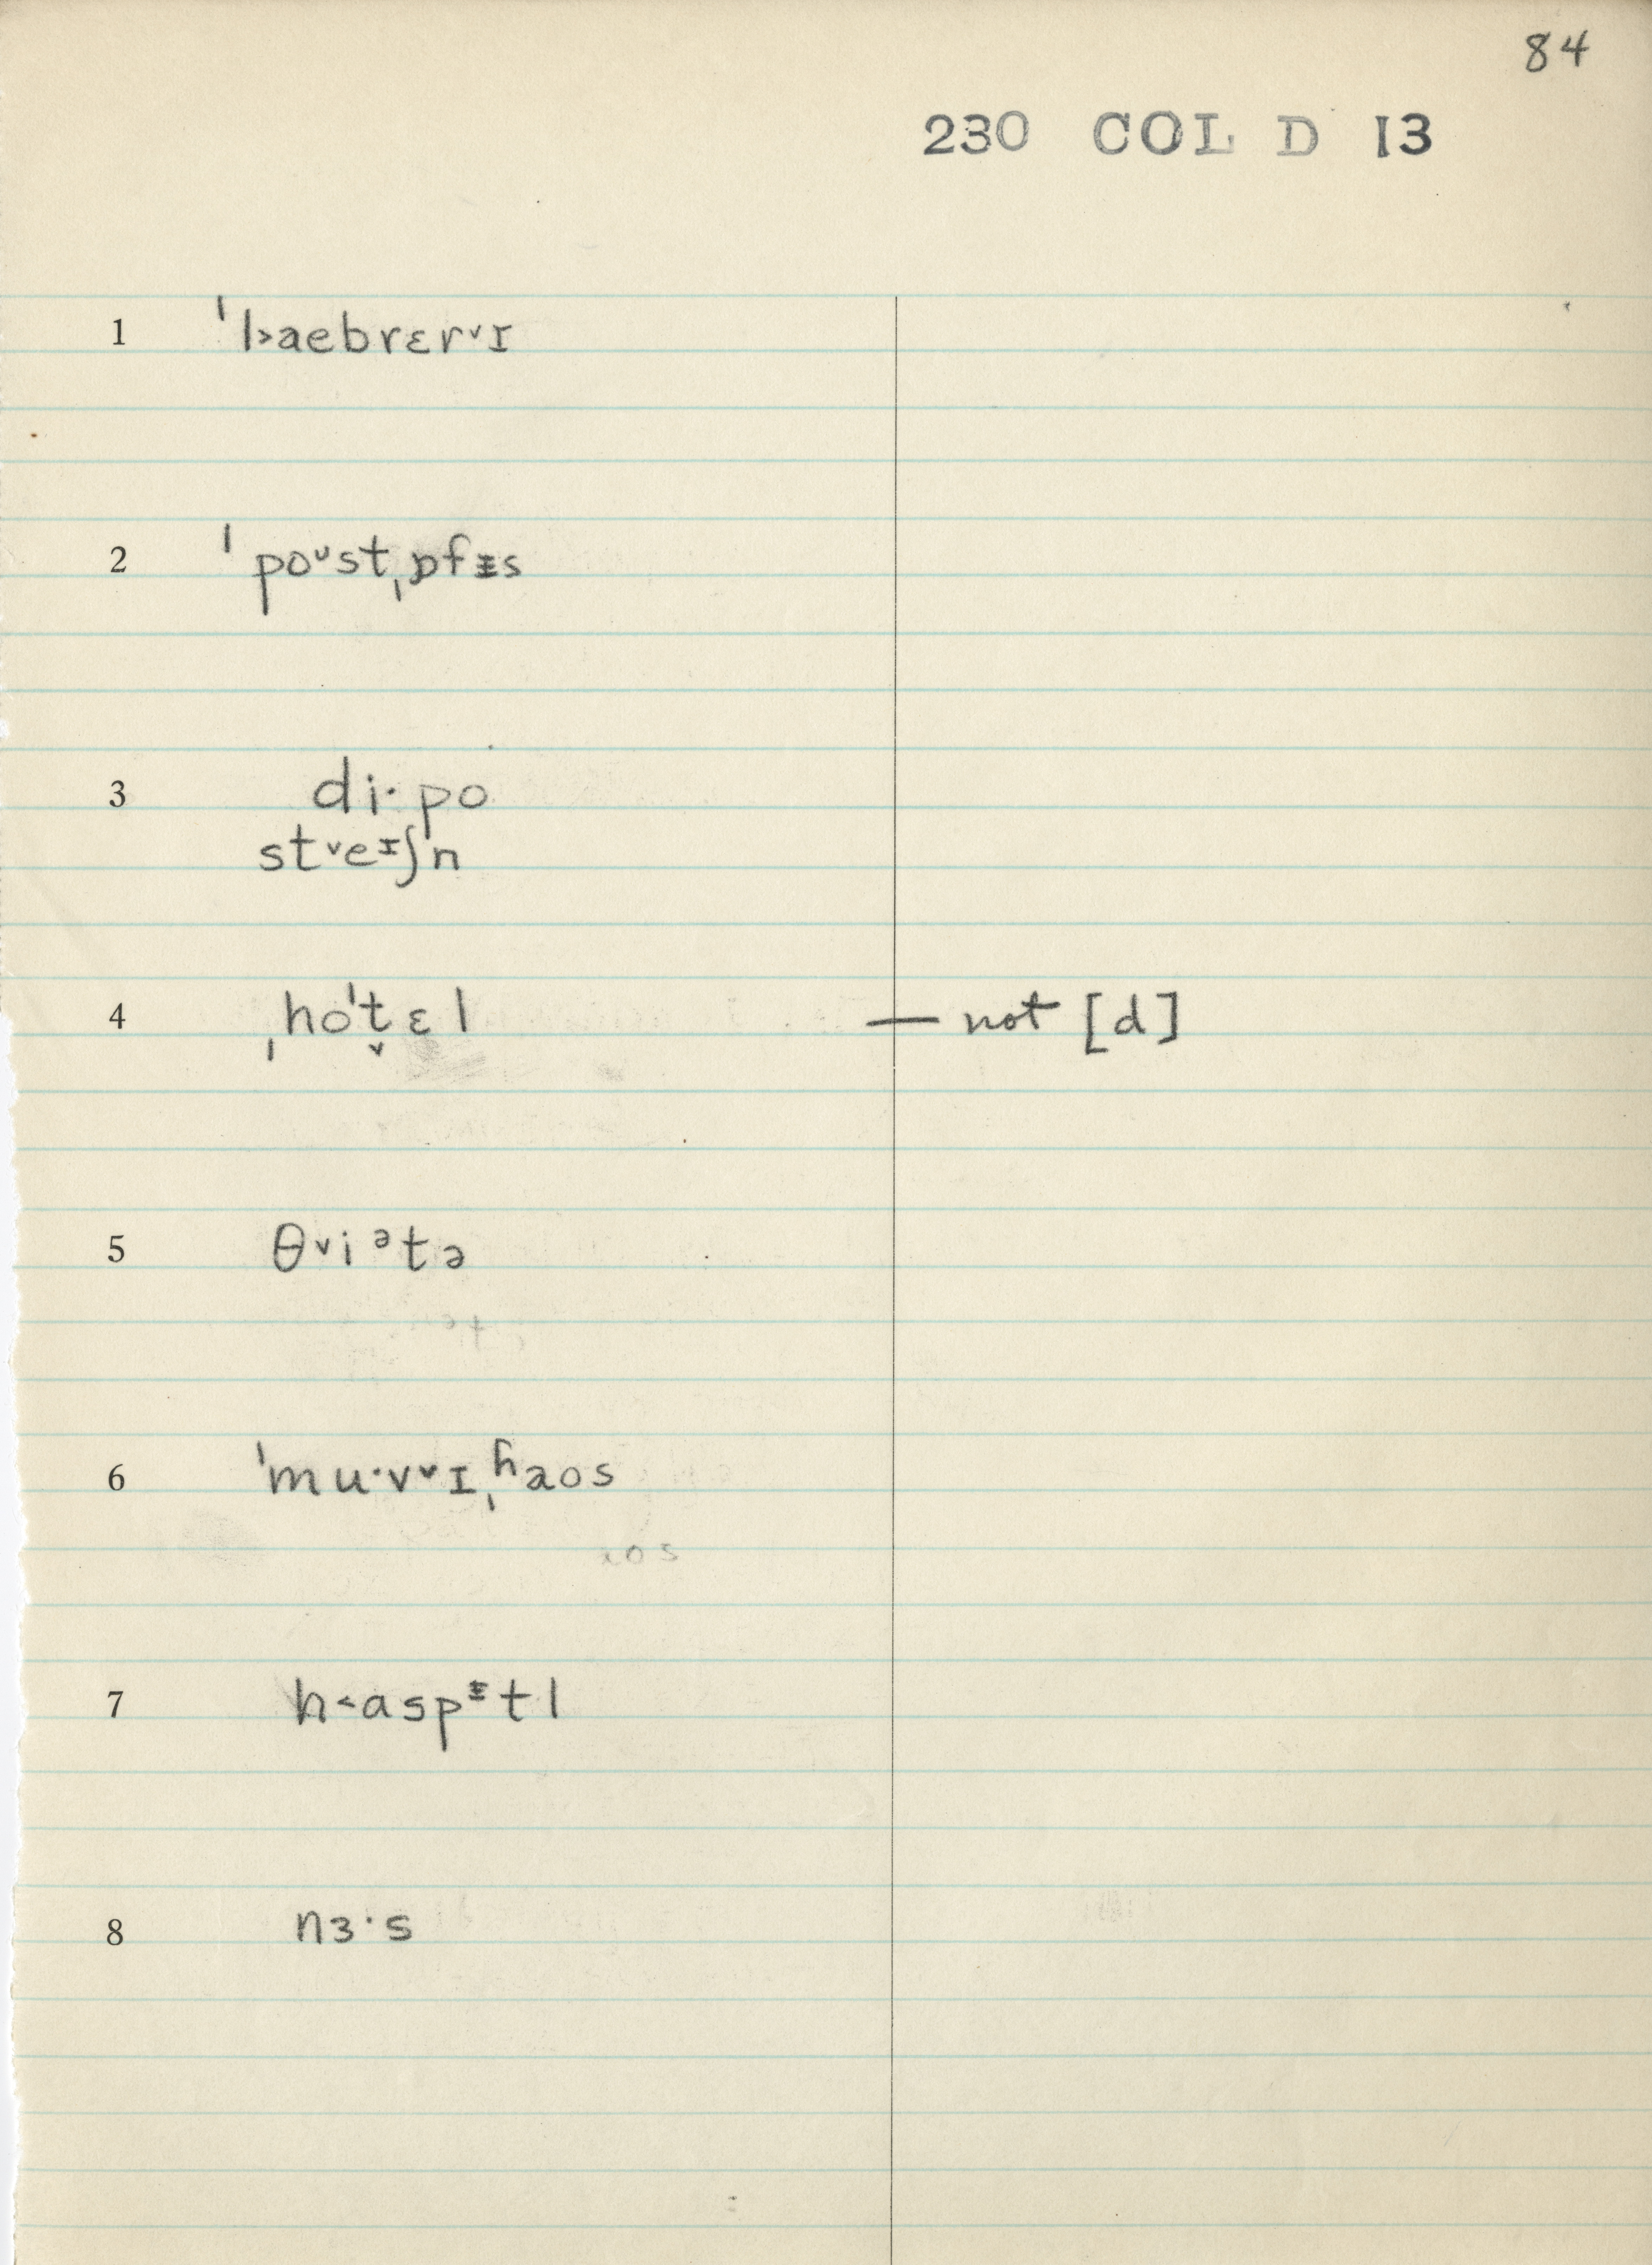 84
230 COL D 13
1 ˈl˃aebrɛr˅ɪ
2 ˈpoᶷstˌɒfɪ̵s
3 di·po
st˅eᶦʃn
4 ˌhoˈt̬ɛl — not [d]
5 θ˅iᵊtə
6 ˈmu·v˅ɪˌɦaos
7 h˂aspᵻtl
8 nɜ·s